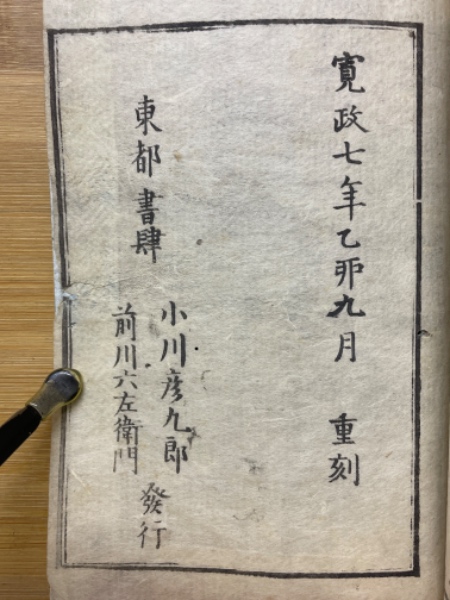 寛政七年乙卯九月　重刻
東都　書肆
小川彦九郎
前川六左衛門
發行